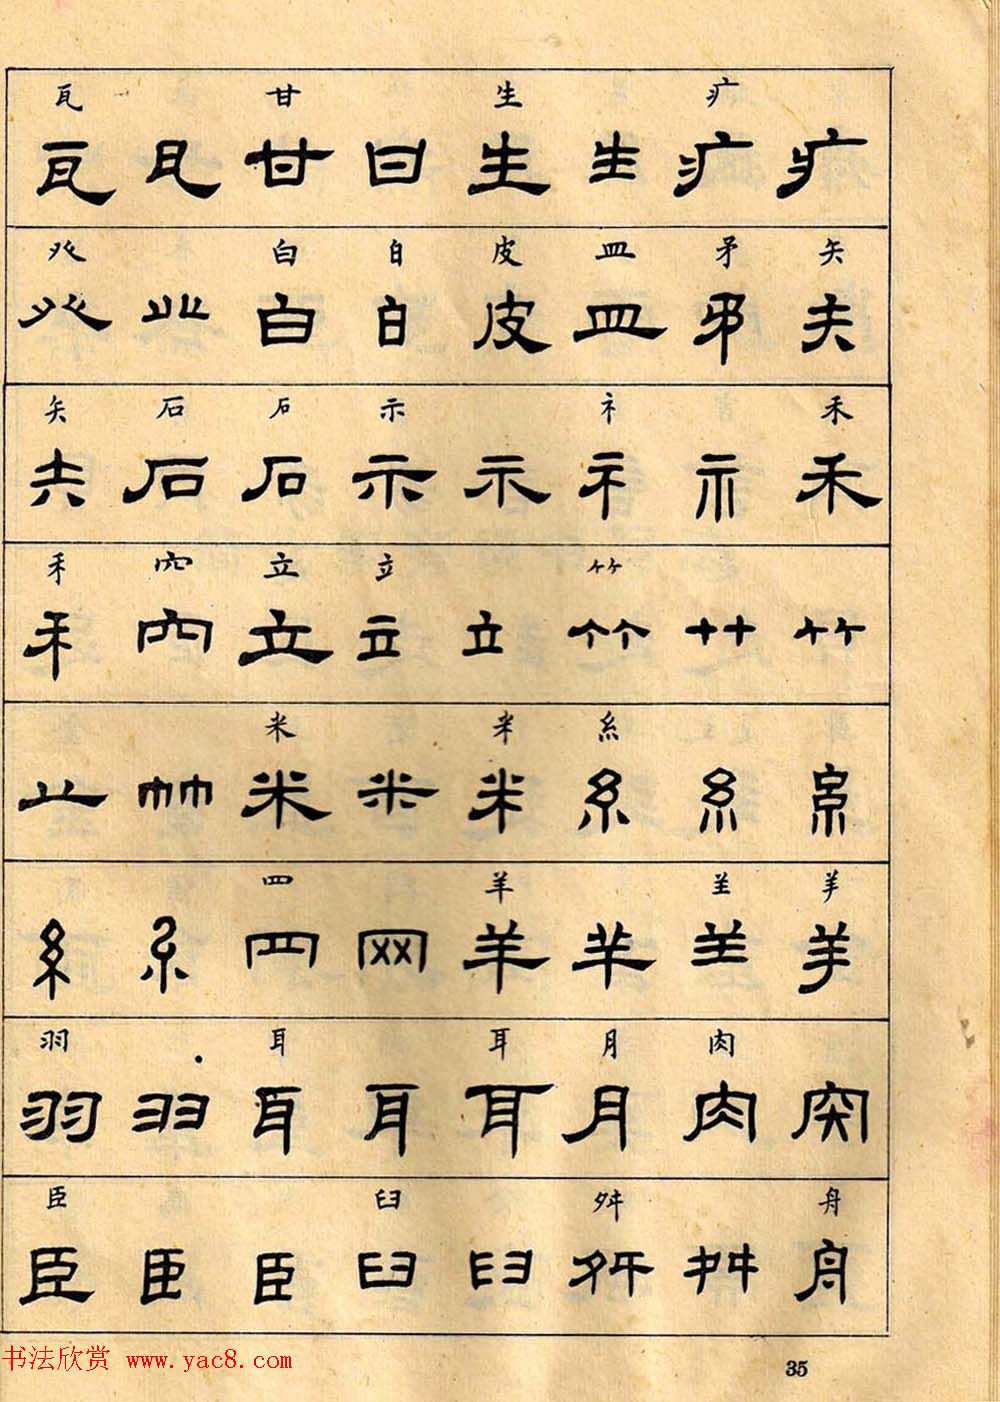 瓦 甘 生 疒
瓦 瓦 甘 甘 生 生 疒 疒
癶 白 白 皮 皿 矛 矢
癶 癶 白 白 皮 皿 矛 矢
矢 石 石 示 礻 禾
矢 石 石 示 示 礻 示 禾
禾 穴 立 立 竹
禾 穴 立 立 立 竹 竹 竹
米 米 糸
竹 竹 米 米 米 糸 糸 糸
四 羊 𦍌 羊
糸 糸 罒 网 羊 羊 𦍌 羊
羽 耳 耳 月 肉
羽 羽 耳 耳 耳 月 肉 肉
臣 臼 舛 舟
臣 臣 臣 臼 臼 舛 舛 舟
书法欣赏 www.yac8.com
35